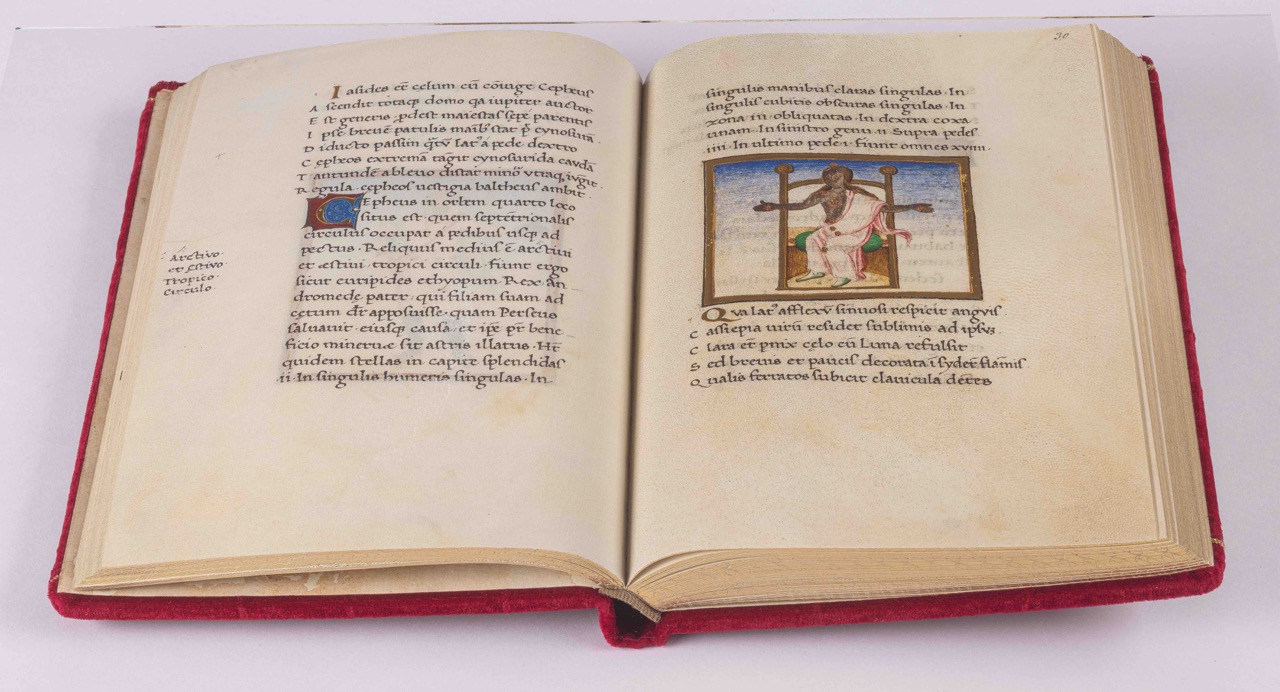 Iasides et̄ celum cū cōiuge Cepheus
Ascendit totaq̨ domo qa iupiter auctor
Est generis ꝓdest maiestas sepe parentis
Ipse breuē patulis manib' stat p̄ cynosurā
Diducto passim qtv̄ lat' a pede dextro
Cepheos extremā tāgit cynosurida caudā
Tantundē ableuo distat minoʳ vtraq, iv̄git
Regula cepheos uestigia baltheus ambit
CEpheus in orbem quarto loco
situs est quem septētrionalis
circulus occupat a pedibus usq̨ ad
pectus. Reliquus medius ē arctiui
et estiui tropici circuli fiunt ergo
sicut euripides ethyopum. Rex an
dromede pater qui filiam suam ad
cetum dr̄ apposuisse quam Perseus
saluauit eiusq̨ causa et ip̄e pr̄ bene
ficio minerue sit astris illatus. Ht̄
quidem stellas in capite splendidas
ii. In singulis humeris singulas. In
Arctivo.
et Estivo
Tropico.
Circulo.
20
singulis manibus claras singulas. In
singulis cubitis obscuras singulas. In
zona in obliquatas. In dextra coxa
unam. In sinistro genu ii supra pedes
iiii. In ultimo pede i. Fiunt omnes xviii.
Qva lat' afflexv̄ sinuosi respicit anguis
Cassiepia uirū residet sublimis ad ipsvꝫ
Clara et ꝑnix celo cū Luna refulsit
Sed breuis et paucis decorata ī syder' flāmis
Qualis ferratos subicit clauicula dētes